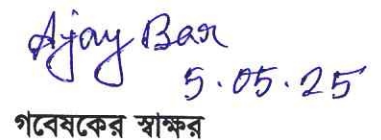 Ajay Bar
5.05.25
গবেষকের স্বাক্ষর